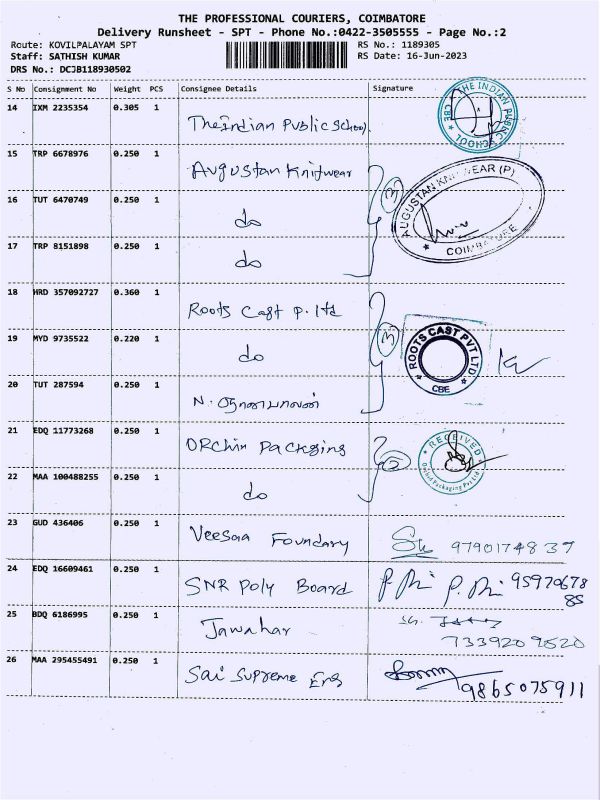 THE PROFESSIONAL COURIERS, COIMBATORE
Delivery Runsheet - SPT - Phone No.:0422-3505555 - Page No.:2
Route: KOVILPALAYAM SPT
RS No.: 1189305
Staff: SATHISH KUMAR
RS Date: 16-Jun-2023
DRS No.: DCJB118930502
S No Consignment No Weight PCS Consignee Details Signature
14 IXM 2235354 0.305 1 The Indian Public School.
THE INDIAN PUBLIC SCHOOL CBE
15 TRP 6678976 0.250 1 Augustan Knitwear
3
AUGUSTAN KNITWEAR (P) COIMBATORE
16 TUT 6470749 0.250 1 do
17 TRP 8151898 0.250 1 do
18 HRD 357092727 0.360 1 Roots Cast P. ltd
19 MYD 9735522 0.220 1 do
3
ROOTS CAST PVT LTD CBE
20 TUT 287594 0.250 1 N.
21 EDQ 11773268 0.250 1 ORchin Packging
2
RECEIVED Packaging Pvt Ltd
22 MAA 100488255 0.250 1 do
23 GUD 436406 0.250 1 Veesaa Foundary 9790174837
24 EDQ 16609461 0.250 1 SNR Poly Board 95970678
85
25 BDQ 6186995 0.250 1 Jawahar
7339209520
26 MAA 295455491 0.250 1 Sai Supreme Eng
9865075911